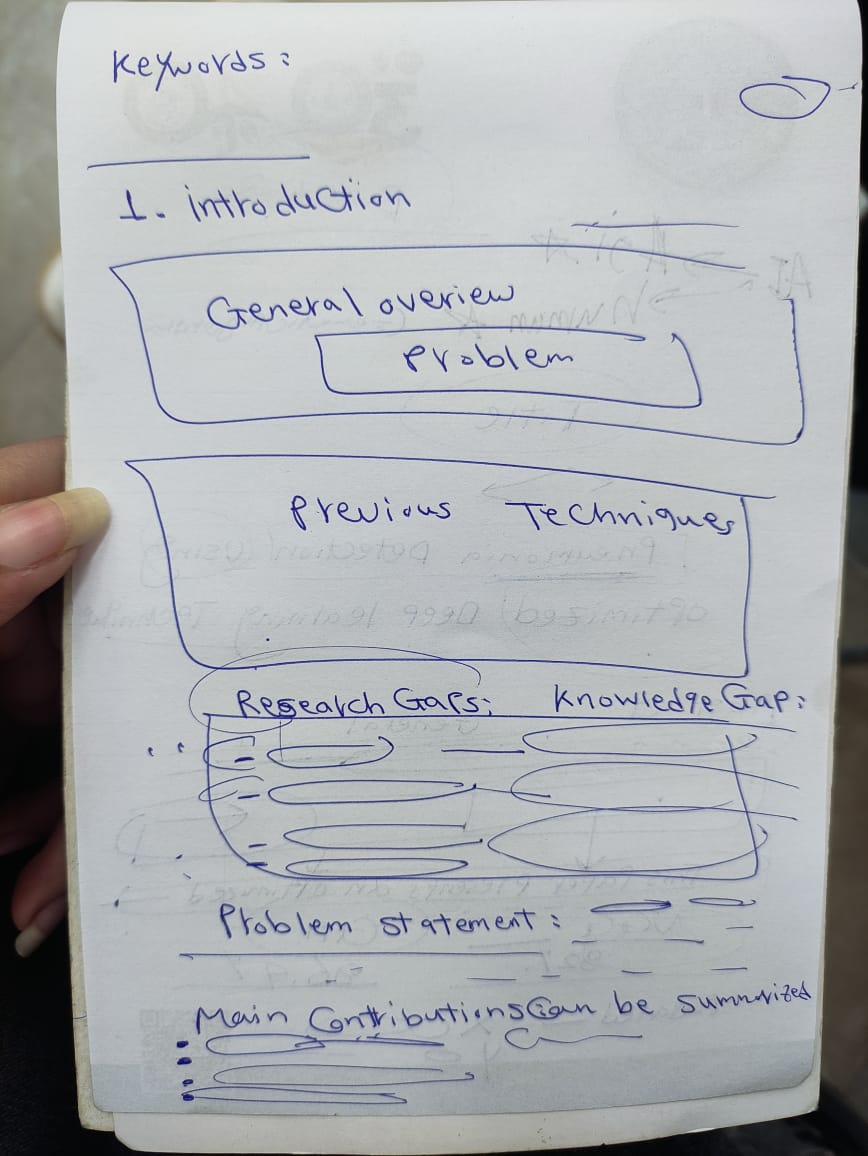 Keywords:
1. introduction
General overiew
Problem
Previous Techniques
Research Gaps: Knowledge Gap:
Problem statement:
Main Contributions Can be summarized